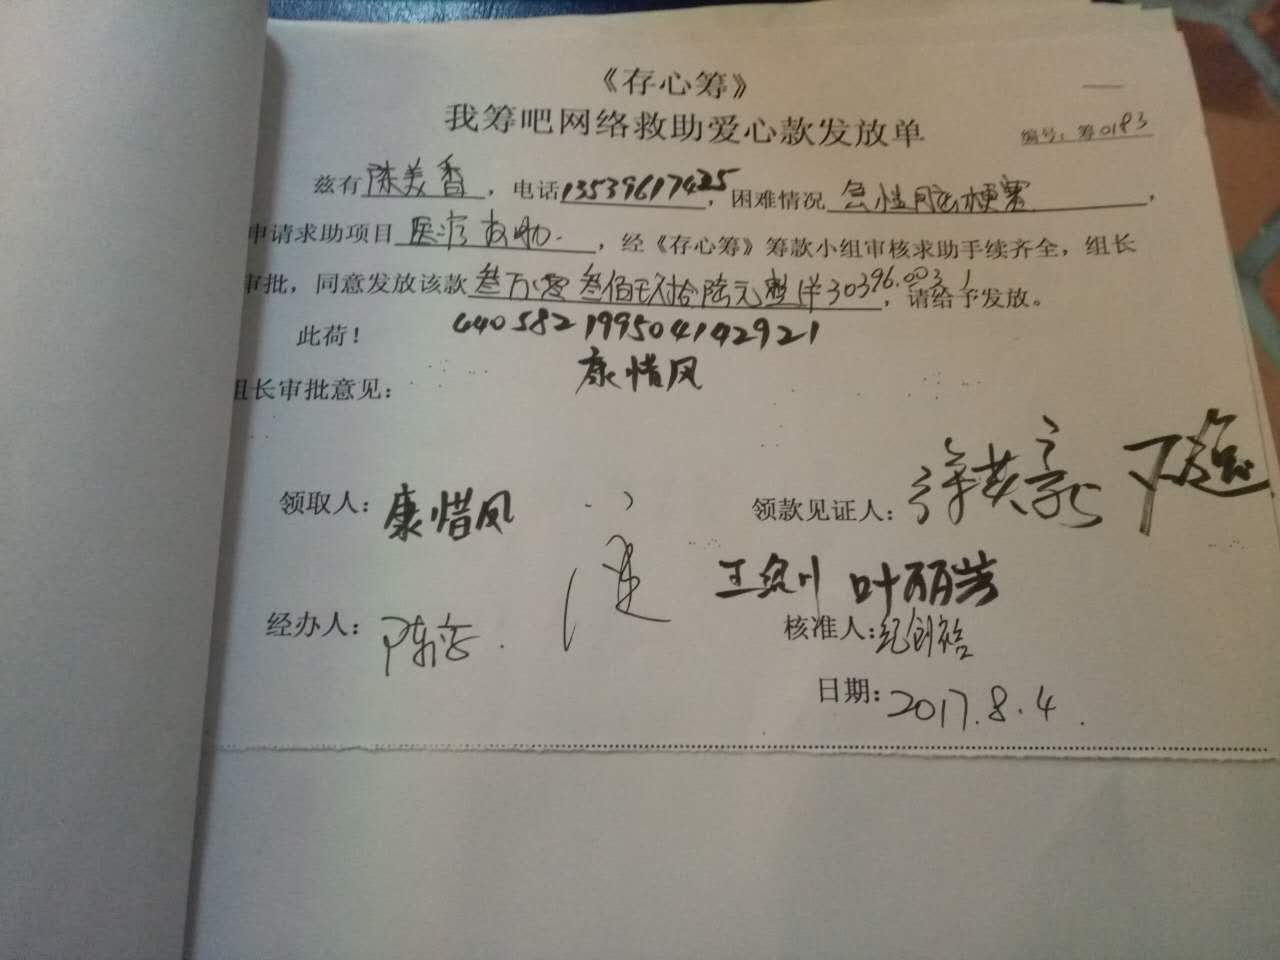 《存心筹》
我筹吧网络救助爱心款发放单
编号：筹0183
兹有陈美香，电话13539617425，困难情况急性脑梗塞，
申请求助项目医疗救助.，经《存心筹》筹款小组审核求助手续齐全，组长
审批，同意发放该款叁万零叁佰玖拾陆元整 30396.00，请给予发放。
此荷！
440582199504142921
康惜凤
组长审批意见：
领取人：康惜凤
领款见证人：
叶丽芳
经办人：陈
核准人：纪创裕
日期：2017.8.4.